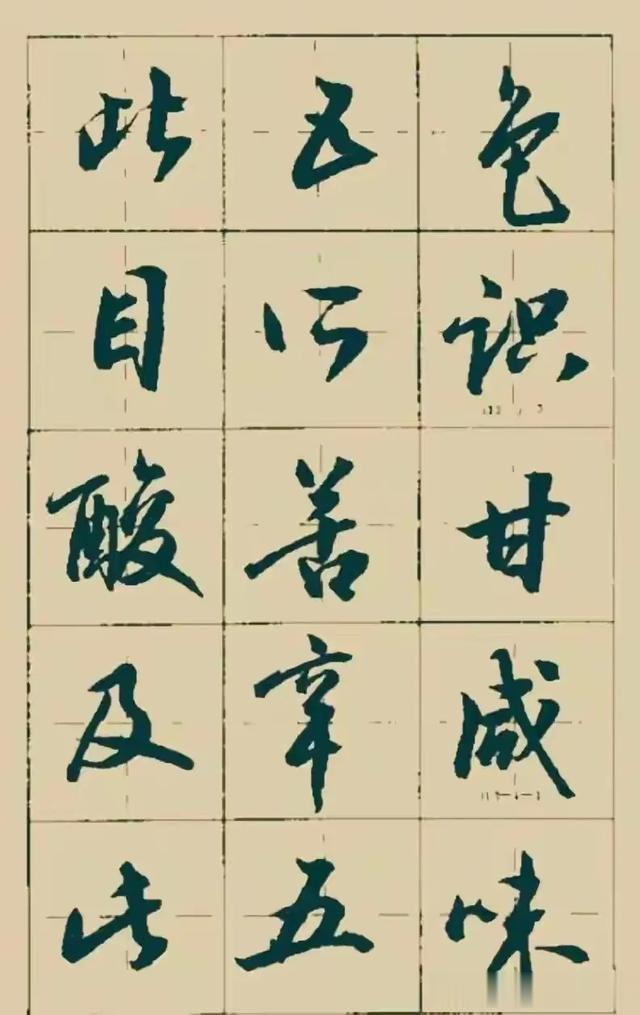 此五色
目所识
酸苦甘
及辛咸
此五味